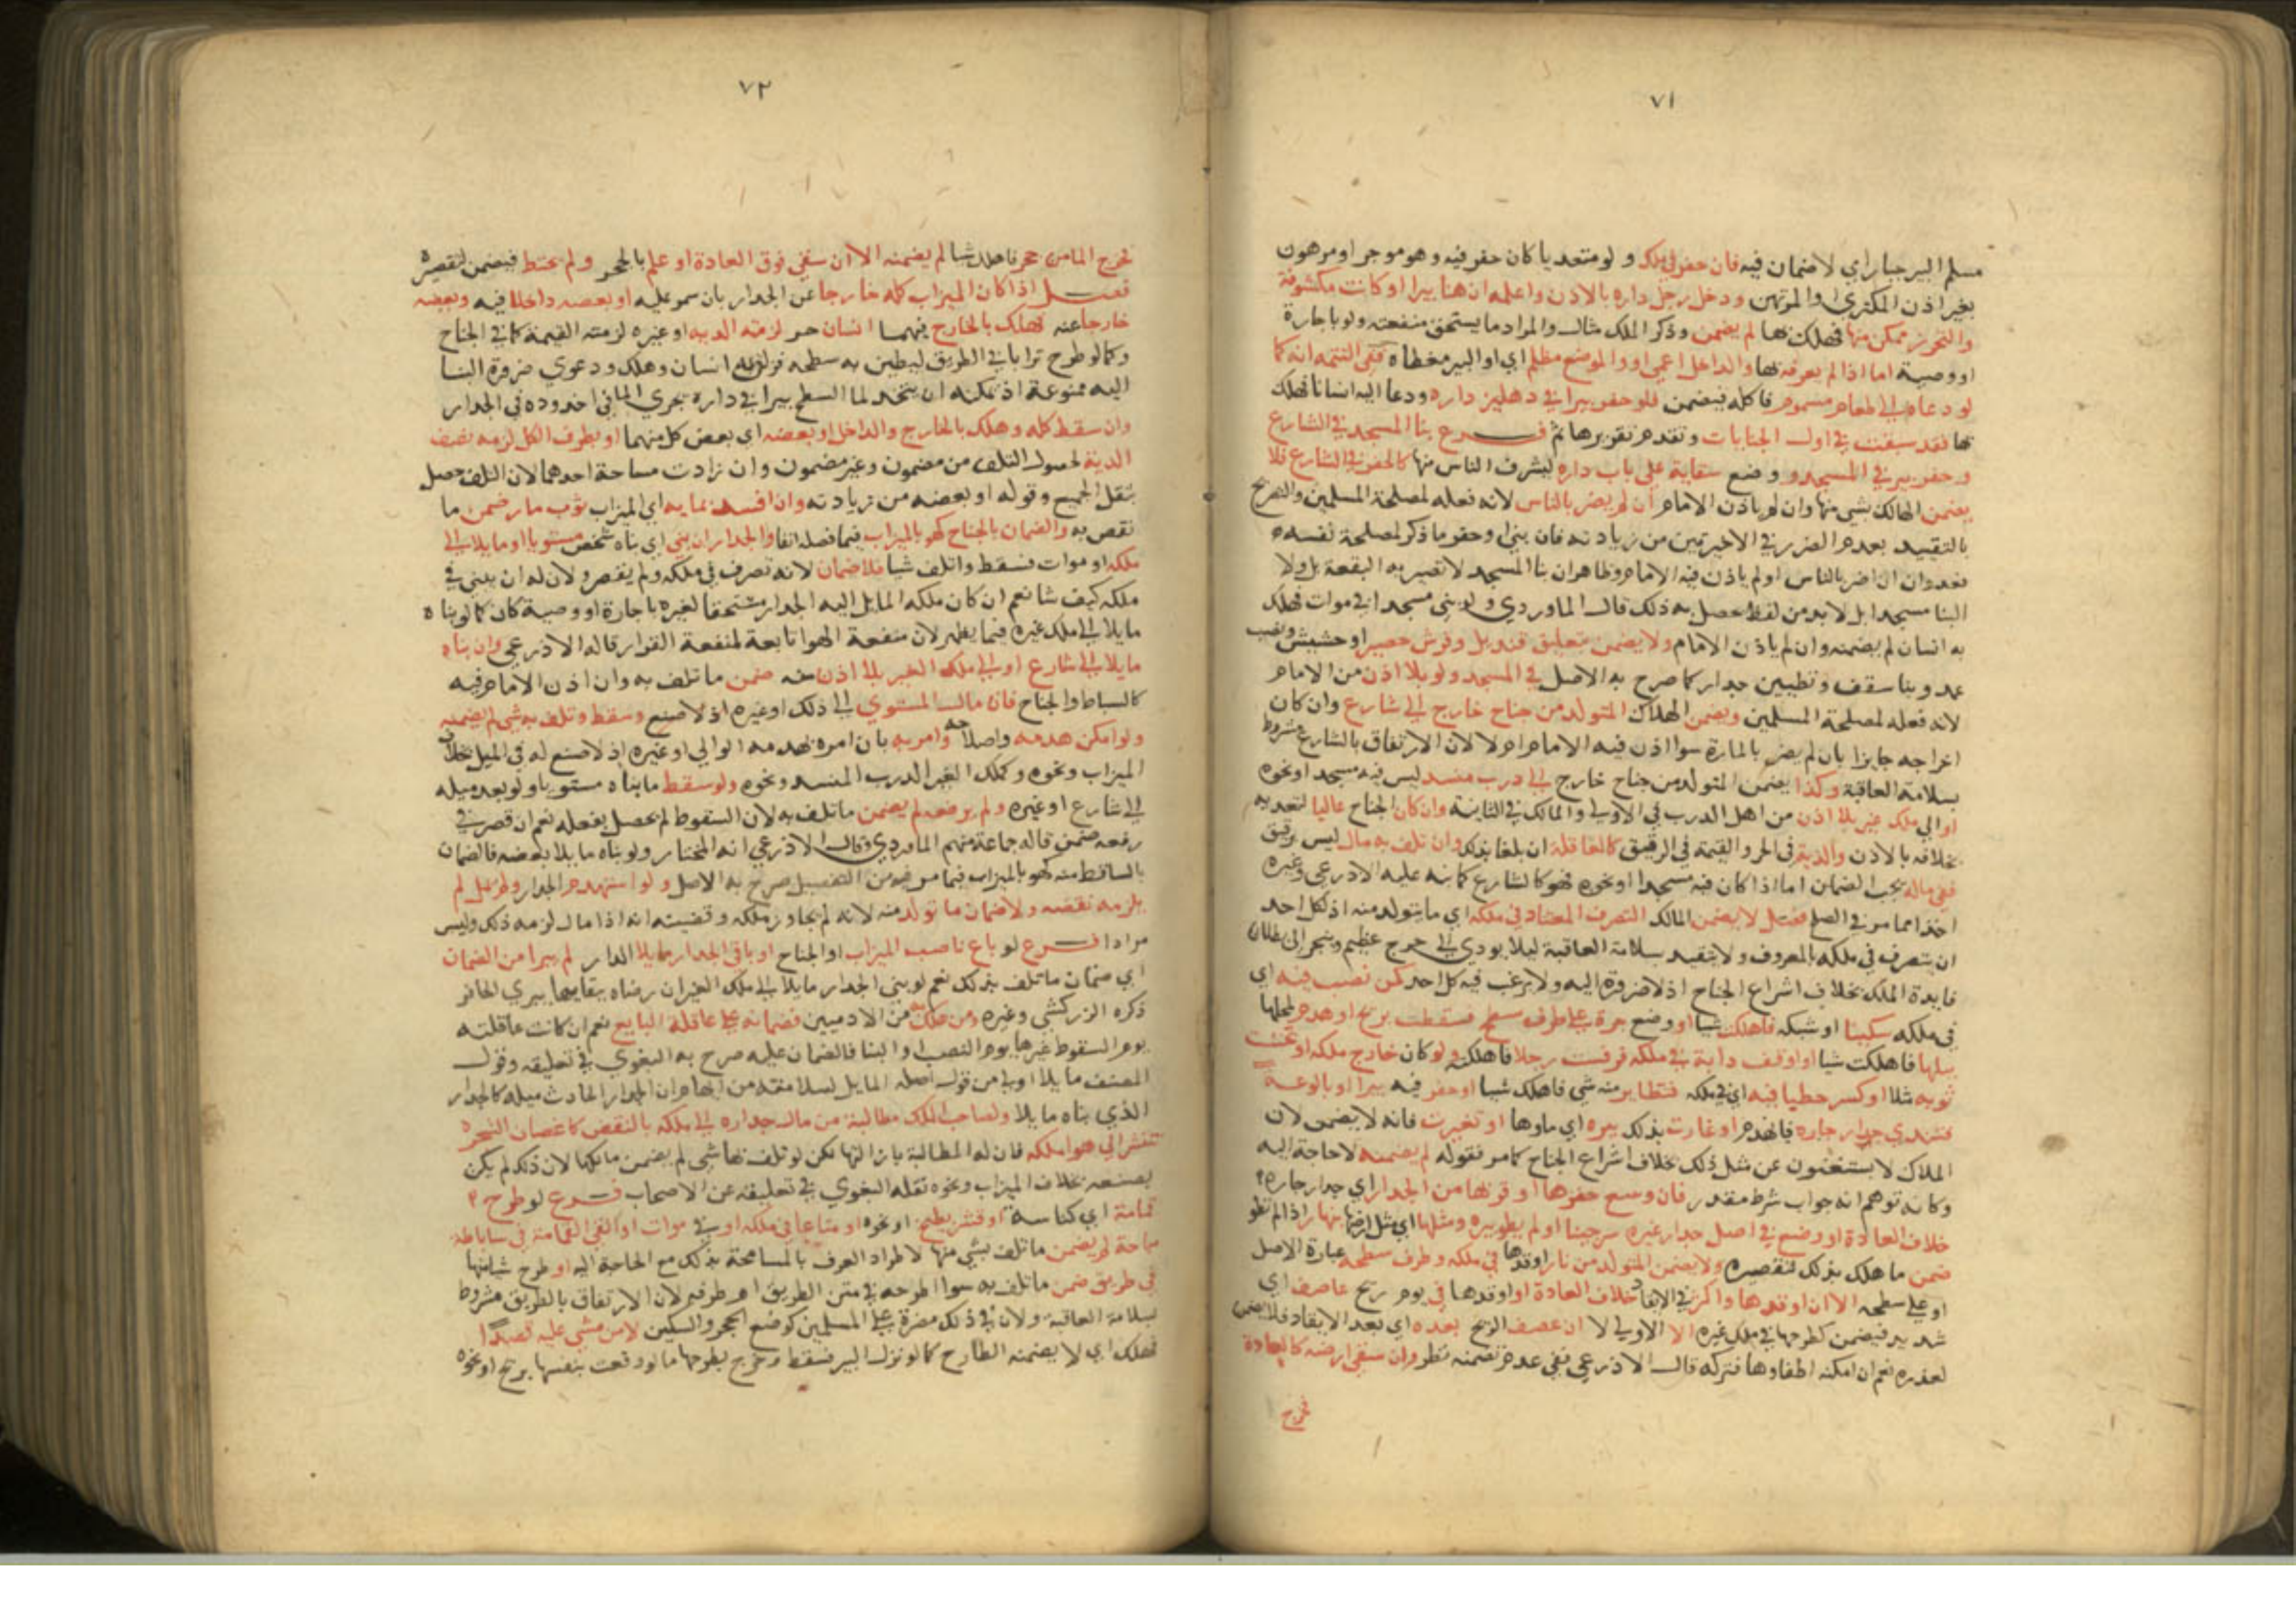 ٧١
مسلم البير جبار اي لاضمان فيه فان حفر في ملكه ولو متعديا كان حفر فيه وهو موجر او مرهون
بغير اذن المكتري والمرتهن ودخل رجل داره بالاذن واعلمه ان هنا بيرا او كانت مكشوفة
والتحرز ممكن منها فهلك بها لم يضمن وذكر الملك مثال والمراد ما يستحق منفعته ولو باجارة
او وصية اما اذا لم يعرفه بها والداخل اعمي او والموضع مظلم اي او البير مغطاه ففي التتمه انه كما
لو دعاه الي طعام مسموم فاكله فيضمن فلو حفر بيرا في دهليز داره ودعا اليه انسانا فهلك
بها فقد سبقت في اول الجنايات وتقدم تقريرها ثم فرع بنا المسجد في الشارع
وحفر بير في المسجد ووضع سقاية علي باب داره ليشرب الناس منها كالحفر في الشارع فلا
يضمن الهالك بشي منها وان لم ياذن الامام ان لم يضر بالناس لانه فعله لمصلحة المسلمين والتصريح
بالتقييد بعدم الضرر في الاخيرتين من زيادته فان بني او حفر ما ذكر لمصلحة نفسه
فعدوان ان اضر بالناس او لم ياذن فيه الامام وظاهر ان بنا المسجد لا تصير به البقعة بل ولا
البنا مسجدا بل لا بد من لفظ حصل به ذلك قال الماوردي ولو بني مسجدا في موات فهلك
به انسان لم يضمنه وان لم ياذن الامام ولا يضمن بتعليق قنديل وفرش حصير او حشيش ونصب
عمد وبنا سقف وتطيين جدار كما صرح به الاصل في المسجد ولو بلا اذن من الامام
لانه فعله لمصلحة المسلمين ويضمن الهلاك المتولد من جناح خارج الي شارع وان كان
اخراجه جايزا بان لم يضر بالمارة سوا اذن فيه الامام ام لا لان الارتفاق بالشارع مشروط
بسلامة العاقبة وكذا يضمن المتولد من جناح خارج الي درب منسد ليس فيه مسجد او نحوه
او الي ملك غير بلا اذن من اهل الدرب في الاولي والمالك في الثانية وان كان الجناح عاليا لتعديه
بخلافه بالاذن والدية في الحر والقيمة في الرقيق كالعاقلة ان بلغا بذلك وان تلف به مال ليس برقيق
ففي ماله يجب الضمان اما اذا كان فيه مسجدا او نحوه فهو كالشارع كما نبه عليه الاذرعي وغيره
اخذا مما مر في الصلح فصل لا يضمن المالك التصرف المعتاد في ملكه اي ما يتولد منه اذ لكل احد
ان يتصرف في ملكه بالمعروف ولا يتقيد بسلامة العاقبة ليلا يودي الي حرج عظيم وينجر الي بطلان
فايدة الملك بخلاف اشراع الجناح اذ لا ضرورة اليه ولا يرغب فيه كل احد كمن نصب فيه اي
في ملكه سكينا او شبكه فاهلك شيا او وضع جرة علي طرف سطح فسقطت بريح او هدم لمحلها
ببلها فاهلكت شيا او اوقف دابة في ملكه فرفست رجلا فاهلكته ولو كان خارج ملكه او نخست
ثوبه مثلا او كسر حطبا فيه اي في ملكه فتطاير منه شي فاهلك شيا او حفر فيه بيرا او بالوعة
فتندي جدار جاره فانهدم او غارت بذلك بيره اي ماوها او تغيرت فانه لا يضمن لان
الملاك لا يستغنون عن مثل ذلك بخلاف اشراع الجناح كما مر فقوله لم يضمنه لا حاجة اليه
وكانه توهم انه جواب شرط مقدر فان وسع حفرها او قربها من الجدار اي جدار جاره
خلاف العادة او وضع في اصل جدار غيره سرجينا او لم يطو بيره ومثلها اي مثل ارضها ينهار اذا لم تطو
ضمن ما هلك بذلك لتقصيره ولا يضمن المتولد من نار اوقدها في ملكه وطرف سطحه عبارة الاصل
او علي سطحه الا ان اوقدها واكثر في الايقاد خلاف العادة او اوقدها في يوم ريح عاصف اي
شديد فيضمن كطرحها في ملك غيره الا الاولي لا ان عصف الريح بعده اي بعد الايقاد فلا يضمن
لعذره نعم ان امكنه اطفاوها فتركه قال الاذرعي ففي عدم تضمينه نظر وان سقي ارضه كالعادة
فخرج
٧٢
فخرج الما من جحر فاهلك شيا لم يضمنه الا ان سقي فوق العادة او علم بالجحر ولم يحتط فيضمن لتقصيره
فصل اذا كان الميزاب كله خارجا عن الجدار بان سمر عليه او بعضه داخلا فيه وبعضه
خارجا عنه فهلك بالخارج فيهما انسان حر لزمته الدية او غيره لزمته القيمة كما في الجناح
وكما لو طرح ترابا في الطريق ليطين به سطحه فزلق به انسان وهلك ودعوي ضرورة البنا
اليه ممنوعة اذ يمكنه ان يتخذ لما السطح بيرا في داره يجري الما في اخدوده في الجدار
وان سقط كله وهلك بالخارج والداخل او بعضه اي بعض كل منهما او بطرف الكل لزمه نصف
الدية لحصول التلف من مضمون وغير مضمون وان زادت مساحة احدهما لان التلف حصل
بثقل الجميع وقوله او بعضه من زيادته وان افسد بمايه اي الميزاب ثوب مار ضمن ما
نقص به والضمان بالجناح كهو بالميزاب فيما فصله انفا والجدار ان بني اي بناه شخص مستويا او مايلا الي
ملكه او موات فسقط واتلف شيا فلا ضمان لانه تصرف في ملكه ولم يقصر ولان له ان يبني في
ملكه كيف شا نعم ان كان ملكه المايل اليه الجدار مستحقا لغيره باجارة او وصية كان كما لو بناه
مايلا الي ملك غيره فيما يظهر لان منفعة الهوا تابعة لمنفعة القرار قاله الاذرعي وان بناه
مايلا الي شارع او الي ملك الغير بلا اذن منه ضمن ما تلف به وان اذن الامام فيه
كالساباط والجناح فان مال المستوي الي ذلك او غيره اذ لا صنع وسقط وتلف به شي لم يضمنه
ولو امكن هدمه واصلاحه وامر به بان امره بهدمه الوالي او غيره اذ لا صنع له في الميل بخلاف
الميزاب ونحوه وكملك الغير الدرب المنسد ونحوه ولو سقط ما بناه مستويا ولو بعد ميله
الي شارع او غيره ولم يرفعه لم يضمن ما تلف به لان السقوط لم يحصل بفعله نعم ان قصر في
رفعه ضمن قاله جماعة منهم الماوردي وقال الاذرعي انه المختار ولو بناه مايلا بعضه فالضمان
بالساقط منه كهو بالميزاب فيما مر فيه من التفصيل صرح به الاصل ولو استهدم الجدار ولم يمل لم
يلزمه نقضه ولا ضمان ما تولد منه لانه لم يجاوز ملكه وقضيته انه اذا مال لزمه ذلك وليس
مرادا فرع لو باع ناصب الميزاب او الجناح او باني الجدار مايلا الدار لم يبرا من الضمان
اي ضمان ما تلف بذلك نعم لو بني الجدار مايلا الي ملك الغير ان رضاه ببقايها يبري الحافر
ذكره الزركشي وغيره ومن هلك به من الادميين فضمانه علي عاقلة البايع نعم ان كانت عاقلته
يوم السقوط غيرها يوم النصب او البنا فالضمان عليه صرح به البغوي في تعليقه وقول
المصنف مايلا اولي من قول اصله المايل لسلامته من ايهام ان الجدار الحادث ميله كالجدار
الذي بناه مايلا ولصاحب الملك مطالبة من مال جداره الي ملكه بالنقض كاغصان الشجرة
تنتشر الي هوا ملكه فان له المطالبة بازالتها لكن لو تلف بها شي لم يضمن مالكها لان ذلك لم يكن
بصنعه بخلاف الميزاب ونحوه نقله البغوي في تعليقه عن الاصحاب فرع لو طرح
قمامة اي كناسة او قشر بطيخ او نحوه او متاعا في ملكه او في موات او القي القمامة في سباطة
مباحة لم يضمن ما تلف بشي منها لاطراد العرف بالمسامحة بذلك مع الحاجة اليه او طرح شيا منها
في طريق ضمن ما تلف به سوا اطرحه في متن الطريق ام طرفه لان الارتفاق بالطريق مشروط
بسلامة العاقبة ولان في ذلك مضرة علي المسلمين كوضع الحجر والسكين لا من مشي عليه قصدا
فهلك اي لا يضمنه الطارح كما لو نزل البير فسقط وخرج بطرحها ما لو وقعت بنفسها بريح او نحوه